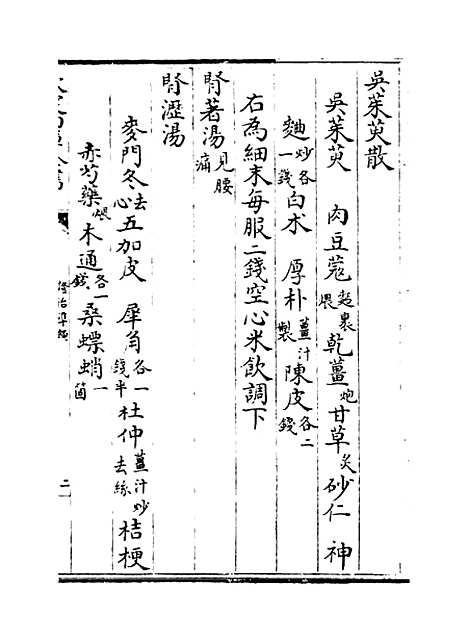 吳茱萸散
吳茱萸　肉豆蔻麪裹煨乾薑炮甘草炙砂仁　神
麯炒各一錢白术　厚朴薑汁製陳皮各二錢
右為細末每服二錢空心米飲調下
腎著湯見腰痛
腎瀝湯
麥門冬去心五加皮　犀角各一錢半杜仲薑汁炒去絲　桔梗
赤芍藥煨木通各一錢桑螵蛸一箇
二